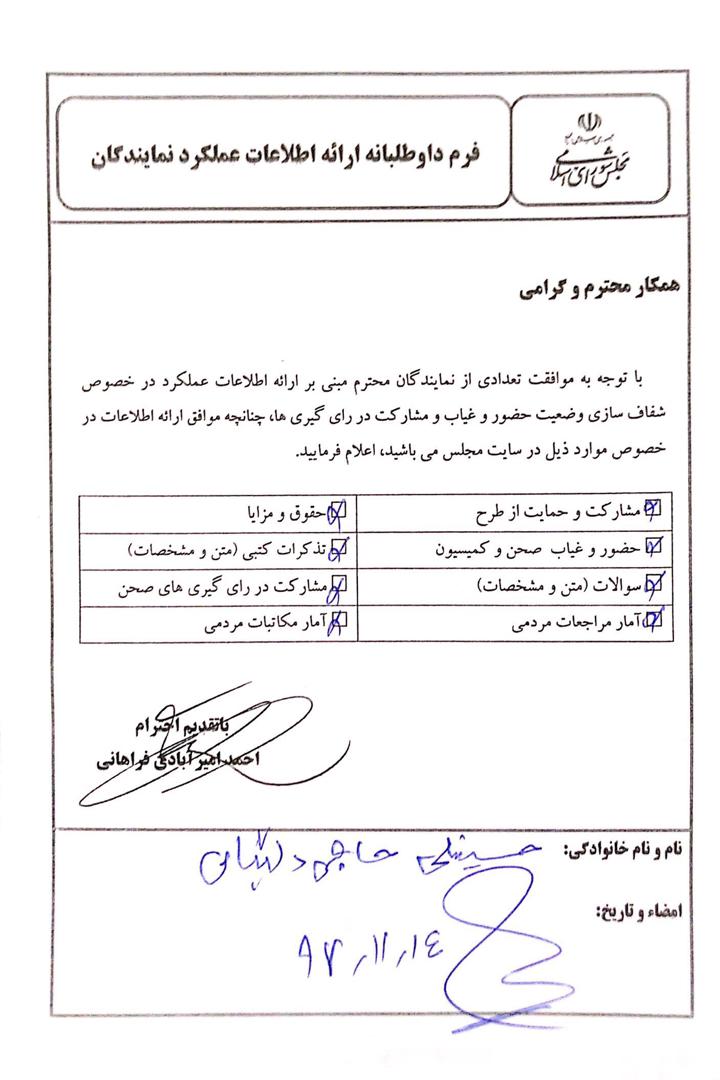 جمهوری اسلامی ایران
مجلس شورای اسلامی
فرم داوطلبانه ارائه اطلاعات عملکرد نمایندگان
همکار محترم و گرامی
با توجه به موافقت تعدادی از نمایندگان محترم مبنی بر ارائه اطلاعات عملکرد در خصوص
شفاف سازی وضعیت حضور و غیاب و مشارکت در رای گیری ها، چنانچه موافق ارائه اطلاعات در
خصوص موارد ذیل در سایت مجلس می باشید، اعلام فرمایید.
مشارکت و حمایت از طرح
حقوق و مزایا
حضور و غیاب صحن و کمیسیون
تذکرات کتبی (متن و مشخصات)
سوالات (متن و مشخصات)
مشارکت در رای گیری های صحن
آمار مراجعات مردمی
آمار مکاتبات مردمی
باتقدیم احترام
احمد امیرآبادی فراهانی
نام و نام خانوادگی: حسینعلی حاجی دلیگانی
امضاء و تاریخ:
۹۷،۱۱،۱۴